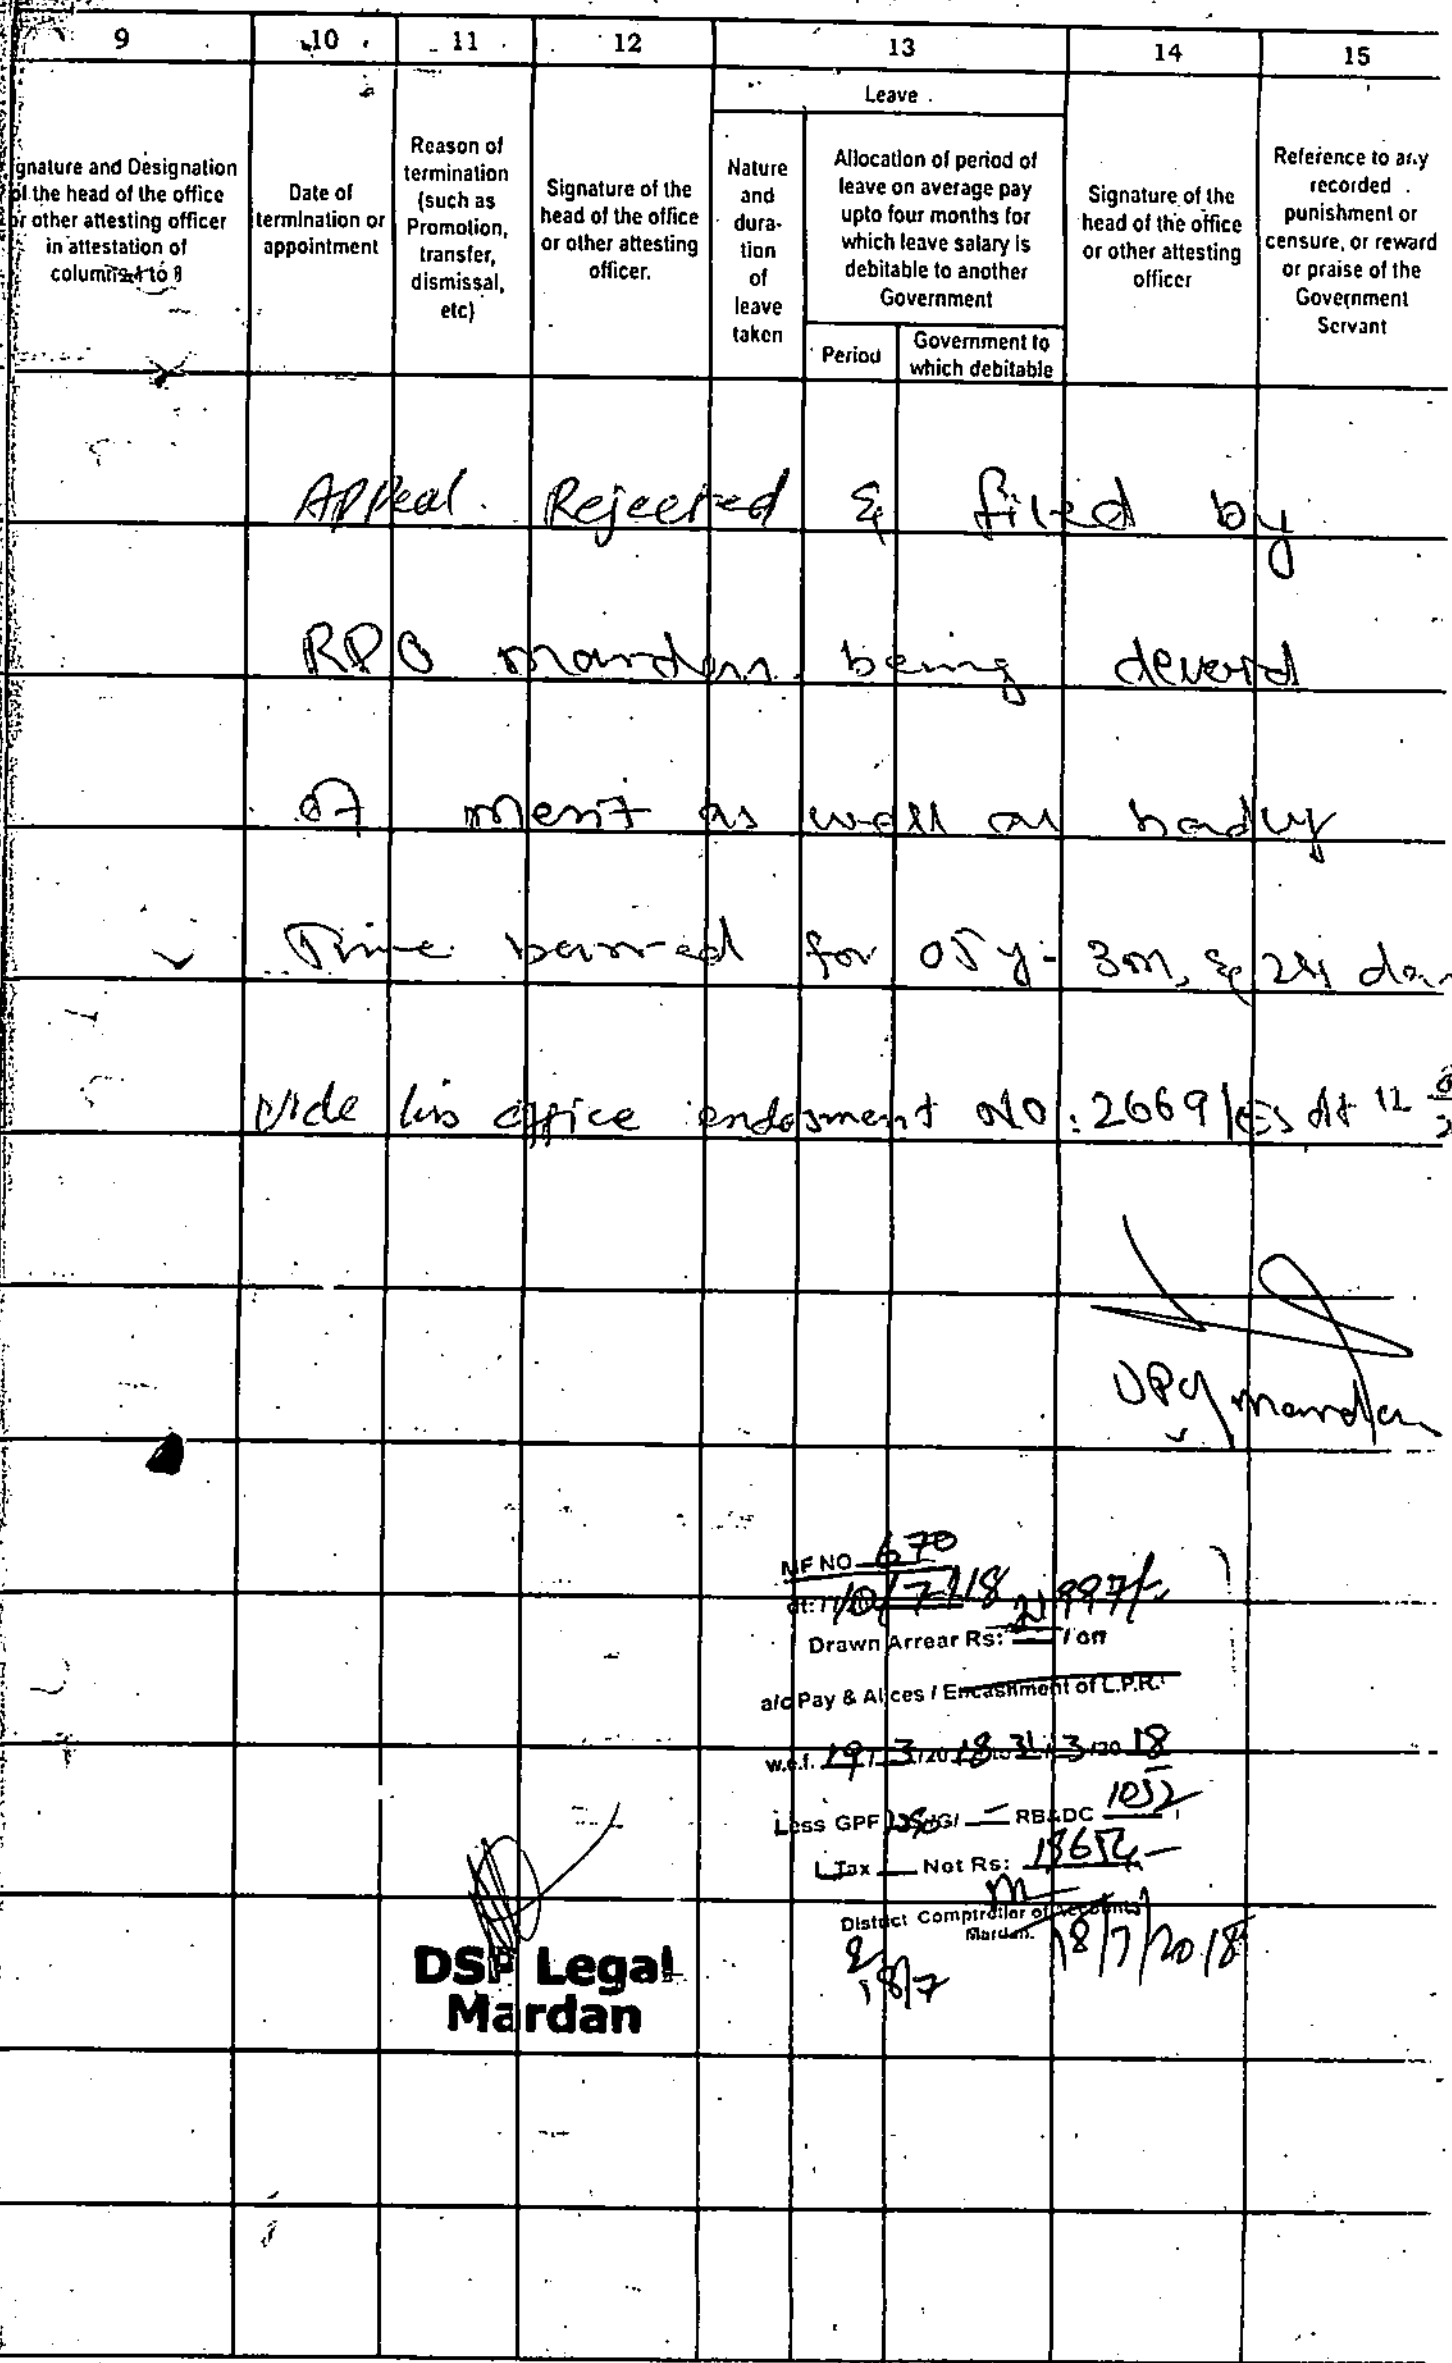 9 10 11 12 13 14 15
gnature and Designation
of the head of the office
or other attesting officer
in attestation of
columns 1 to 8
Date of
termination or
appointment
Reason of
termination
(such as
Promotion,
transfer,
dismissal,
etc)
Signature of the
head of the office
or other attesting
officer.
Leave
Nature
and
dura-
tion
of
leave
taken
Allocation of period of
leave on average pay
upto four months for
which leave salary is
debitable to another
Government
Period
Government to
which debitable
Signature of the
head of the office
or other attesting
officer
Reference to any
recorded
punishment or
censure, or reward
or praise of the
Government
Servant
Appeal Rejected & filed by
RPO mardan being devoid
of merit as well as badly
Time barred for 05 y- 3m, &
Vide his office endosment NO: 2669/ES dt 12
mardan
MF NO 670
dt: 10/7/18
Drawn Arrear Rs: 21997/-
a/c Pay & Alices / Encashment of L.P.R.
w.e.f. 19/3/2018 to 31/3/2018
Less GPF G/ — RB&DC 1052
I.Tax — Net Rs:
District Comptroller of Accounts
Mardan.
18/7/2018
18/7
DSP Legal
Mardan